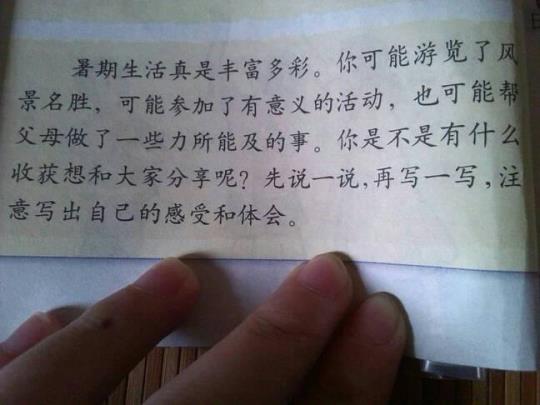 暑期生活真是丰富多彩。你可能游览了风
景名胜，可能参加了有意义的活动，也可能帮
父母做了一些力所能及的事。你是不是有什么
收获想和大家分享呢？先说一说，再写一写，注
意写出自己的感受和体会。